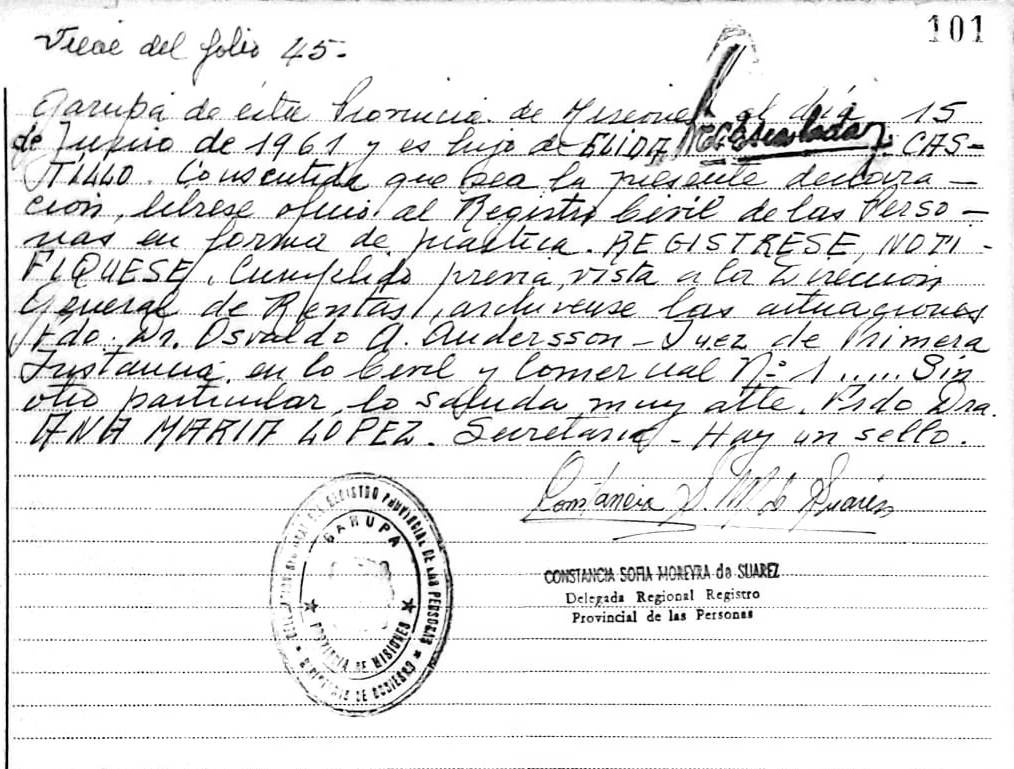 101
Viene del folio 45.-
Garupá de esta Provincia de Misiones el día 15
de Junio de 1961 y es hijo de ELIDA CAS-
TILLO. Consentida que sea la presente declara-
ción, líbrese oficio al Registro Civil de las Perso-
nas en forma de práctica. REGISTRESE, NOTI-
FIQUESE. Cumplido previa vista a la Dirección
General de Rentas, archívense las actuaciones
Fdo. Dr. Osvaldo A. Andersson - Juez de Primera
Instancia en lo Civil y Comercial Nº 1 ..... Sin
otro particular, lo saluda muy atte. Fido Dra.
ANA MARIA LOPEZ. Secretaria - Hay un sello.
Constancia S. M. de Suárez
CONSTANCIA SOFIA MOREYRA de SUAREZ
Delegada Regional Registro
Provincial de las Personas
REGISTRO PROVINCIAL DE LAS PERSONAS
GARUPA
PROVINCIA DE MISIONES
MINISTERIO DE GOBIERNO